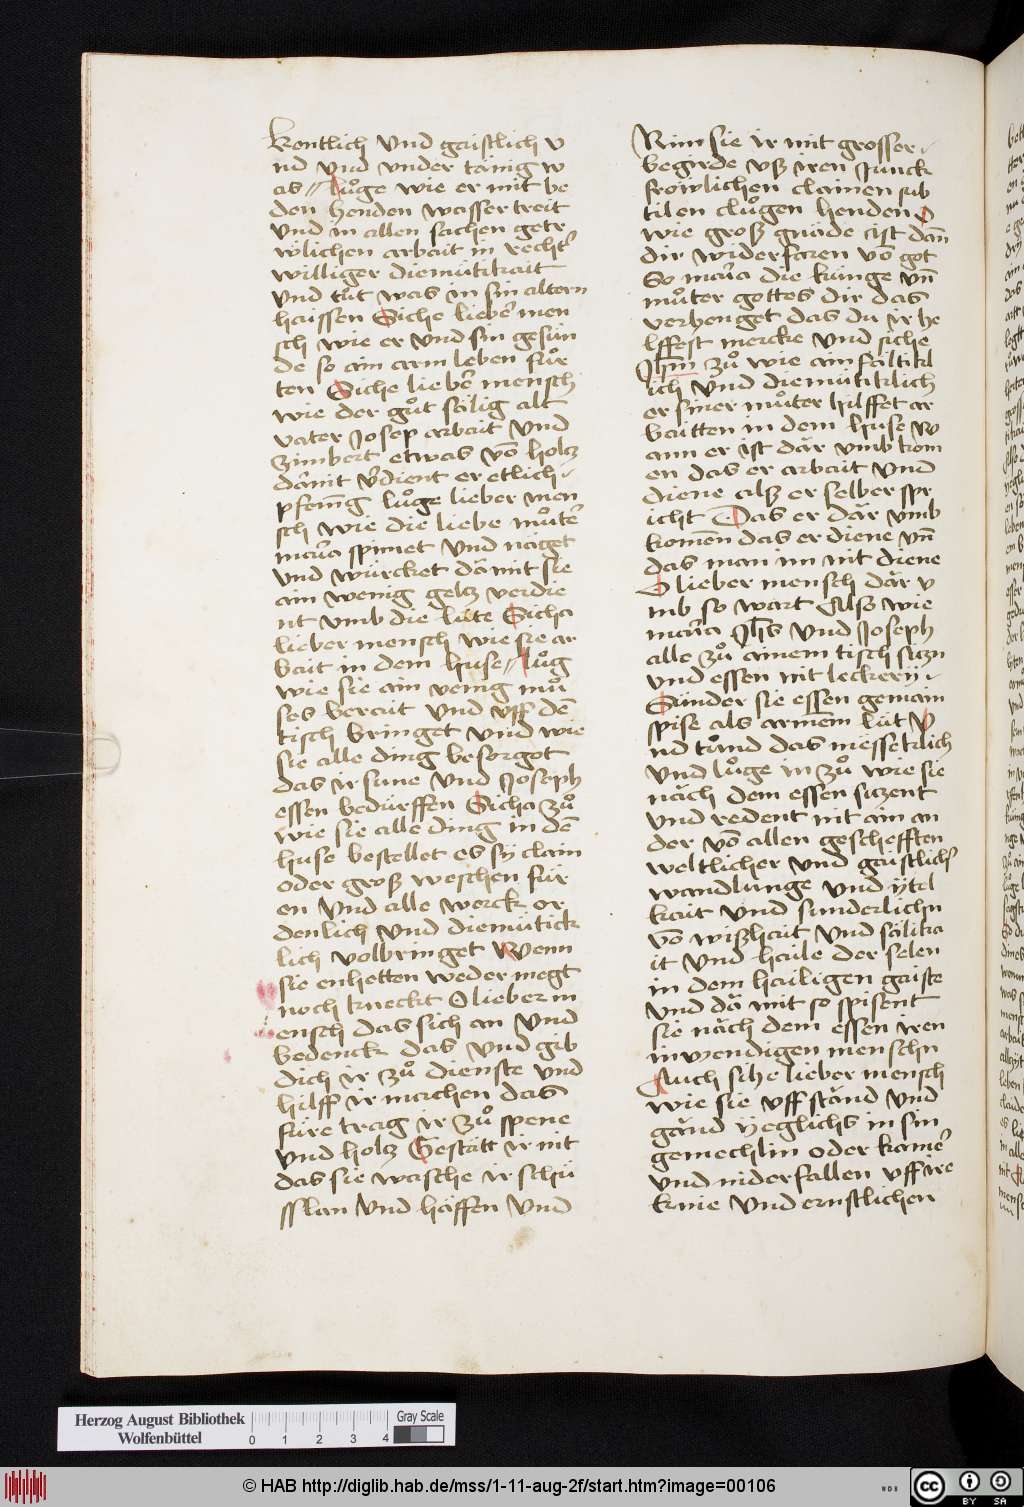 kentlich vnd gaistlich v
nd vnd vnder tänig w
as // lůge wie er mit be
den henden wasser treit
vnd in allen sachen getr
wlichen arbait in recht͛
williger diemütikait
vnd tůt was in sin altern
haissen Siche lieber men
sch wie er vnd sin gesün
de so ain arm leben fůr
ten Siche lieber mensch
wie der gůt sälig alt
vater Josep arbait vnd
zimbert etwas võ holcz
dämit v͛dient er etlich
pfening lůge lieber men
sch wie die liebe můte͛
maria spinnet vnd näget
vnd würcket dä mit sie
ain wenig gelcz verdie
nt vmb die lüte Sicha
lieber mensch wie sie ar
bait in dem huse // lůg
wie sie ain wenig mů
ses berait vnd vff dẽ
tisch bringet vnd wie
sie alle ding besorgot
das ir sune vnd Joseph
essen bedürffen Sicha zů
wie sie alle ding in dẽ
huse bestellet es sÿ clain
oder groß weschen für
en vnd alle werck or
denlich vnd diemütick
lich volbringet Wenn
sie enhetten weder megt
noch knecht O lieber m
ensch das sich an vnd
bedenck das vnd gib
dich ir zů dienste vnd
hilff ir machen das
füre trag ir zů spene
vnd holcz Gestätt ir nit
das sie wasche ir schü
sslan vnd häffen vnd
Nim sie ir mit grosser
begirde vß iren junck
fröwlichen clainen sub
tilen clůgen henden O
wie groß gnäde ist dañ
dir widerfaren võ got
So maria die künge vñ
můter gottes dir das
verhenget das du ir he
lffest mercke vnd siche
Jhm̃ zů wie ainfaltikl
ich vnd diemütiklich
er siner můter hilffet ar
baitten in dem huse w
ann er ist där vmb kom
en das er arbait vnd
diene alß er selber spr
icht Das er där vmb
komen das er diene vñ
das man im nit diene
O lieber mensch där v
mb so wart Also wie
maria Jhs̃ vnd Joseph
alle zů ainem tisch siczn
vnd essen nit leckerÿ
Sünder sie essen gemain
spise als armem lüt v
nd tůnd das mëssecklich
vnd lůge in zů wie sie
näch dem essen siczent
vnd redent nit ain an
der võ allen geschefften
weltlicher vnd gaistlich͛
wandlunge vnd ÿtel
kait vnd sunderlichn
võ wißhait vnd sälika
it vnd haile der selen
in dem hailigen gaiste
vnd dä mit so spisent
sie näch dem essen iren
inwendigen menschn
Auch sihe lieber mensch
wie sie vff ständ vnd
gänd ÿeglichs in sin
gemechlin oder kamer
vnd niderfallen vff ire
knie vnd ernstlichen
Herzog August Bibliothek
Wolfenbüttel
0 1 2 3 4
Gray Scale
© HAB http://diglib.hab.de/mss/1-11-aug-2f/start.htm?image=00106
WDB
cc BY SA